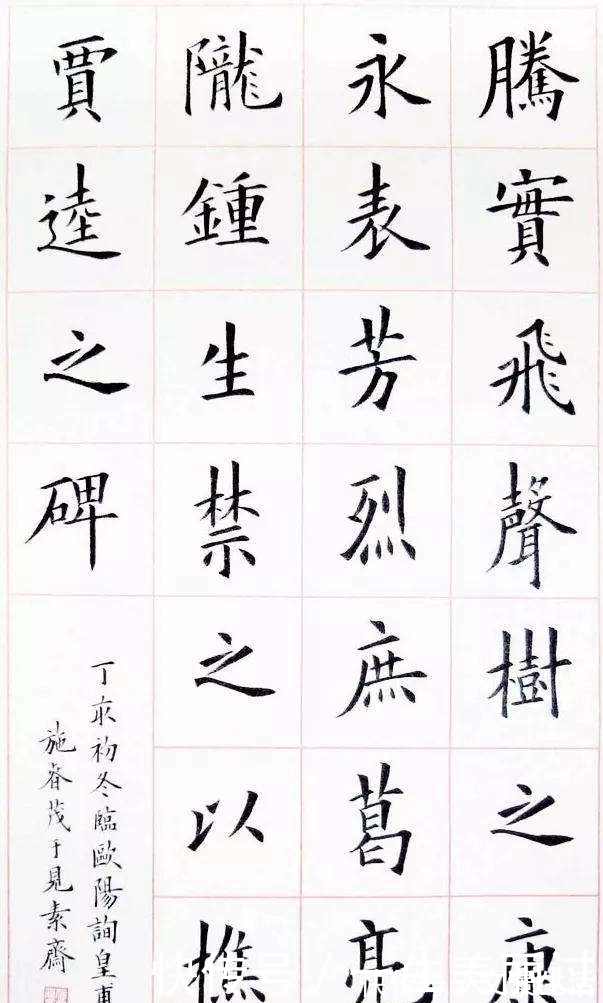 騰實飛聲樹之
永表芳烈庶葛亮
隴鍾生禁之以樵
賈逵之碑
丁亥初冬臨歐陽詢皇甫
施睿茂于見素齋
快传号 /